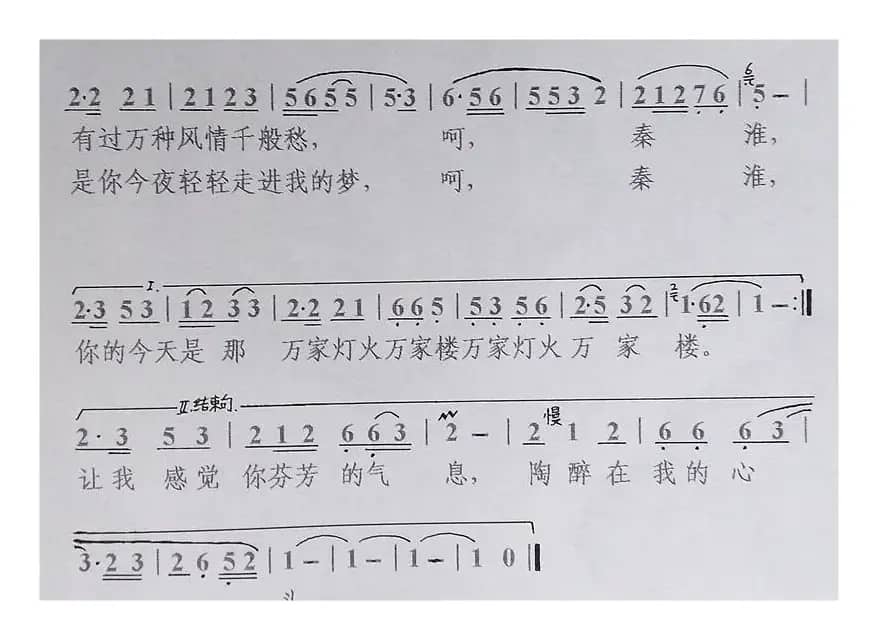 2·2 21|2123|5655|5·3|6·56|5532|21276|5–|
有过万种风情千般愁, 呵, 秦 淮,
是你今夜轻轻走进我的梦, 呵, 秦 淮,
I.
2·3 53|12 33|2·2 21|665|53 56|2·5 32|1·62|1–:‖
你的今天是 那 万家灯火万家楼万家灯火 万 家 楼。
II.结束句.
慢
2·3 53|212 663|2–|2 1 2|6 6 6 3|
让我 感觉 你芬芳 的气 息, 陶 醉 在 我 的 心
3·23|2652|1–|1–|1–|1 0‖